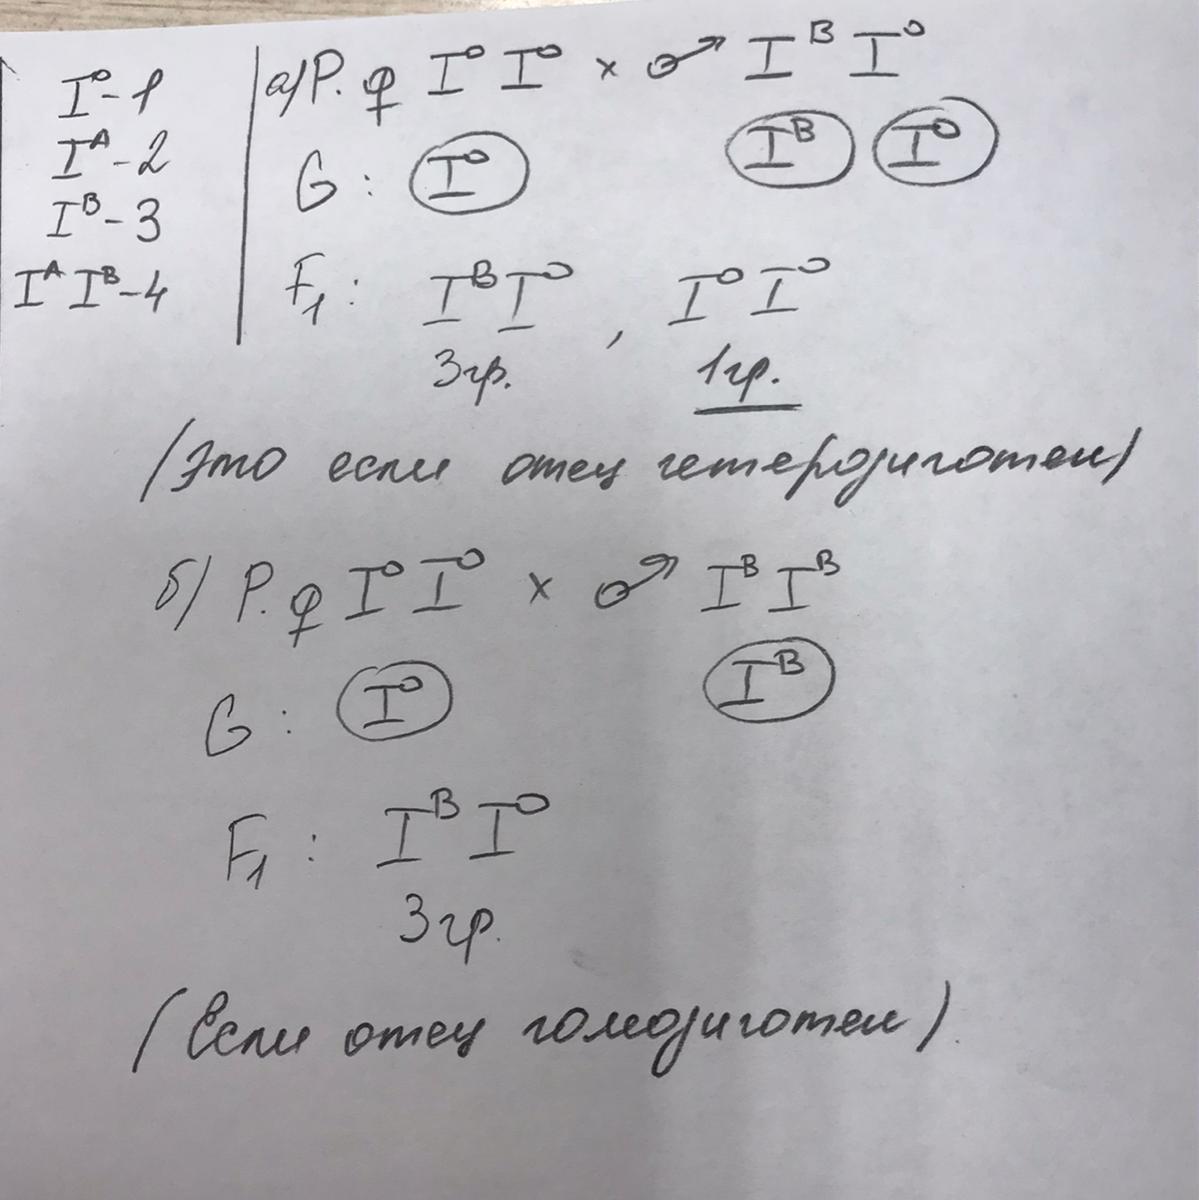 I⁰-1
Iᴬ-2
Iᴮ-3
Iᴬ Iᴮ-4
а) P. ♀ I⁰ I⁰ × ♂ Iᴮ I⁰
G: I⁰ Iᴮ I⁰
F₁: Iᴮ I⁰, I⁰ I⁰
3гр. 1гр.
(Это если отец гетерозиготен)
б) P. ♀ I⁰ I⁰ × ♂ Iᴮ Iᴮ
G: I⁰ Iᴮ
F₁: Iᴮ I⁰
3гр.
(Если отец гомозиготен).